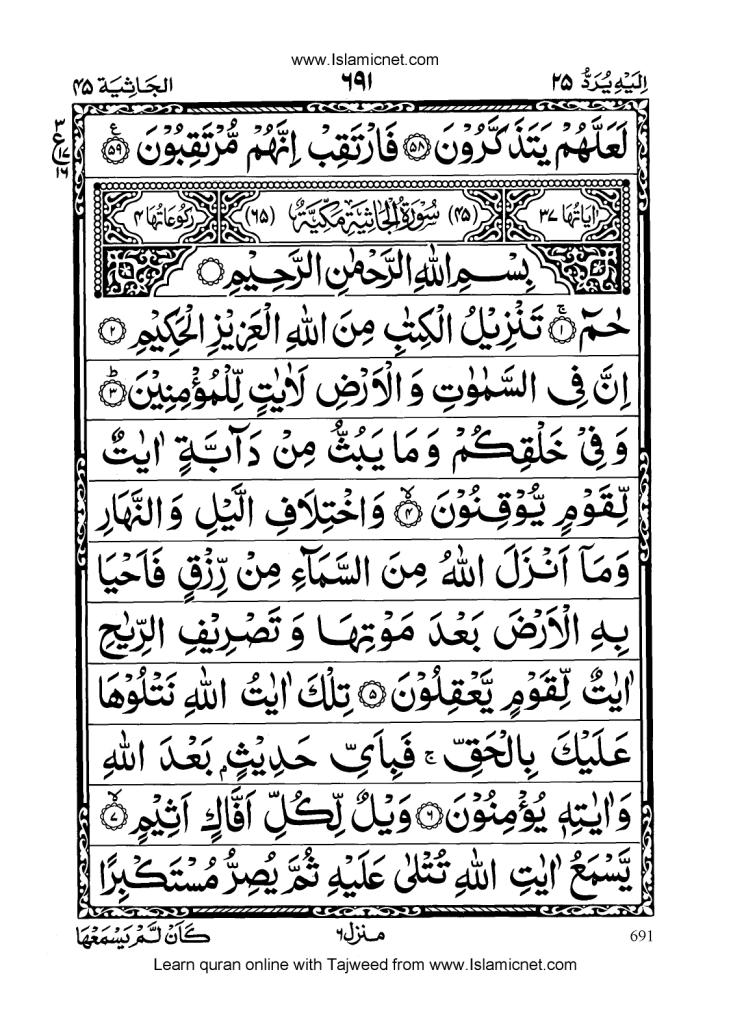 www.Islamicnet.com
اِلَيْهِ يُرَدُّ ۲۵ ۶۹۱ الجَاثِيَة ۴۵
۳
ع
۱۷
۱۶
لَعَلَّهُمْ يَتَذَكَّرُوْنَ ﴿۵۸﴾ فَارْتَقِبْ اِنَّهُمْ مُّرْتَقِبُوْنَ ﴿۵۹﴾ ع
اٰيَاتُهَا ۳۷ (۴۵) سُوْرَةُ الْجَاثِيَةِ مَكِّيَّةٌ (۶۵) رُكُوْعَاتُهَا ۴
بِسْمِ اللهِ الرَّحْمٰنِ الرَّحِيْمِ
حٰمٓ ﴿۱﴾ ۚ تَنْزِيْلُ الْكِتٰبِ مِنَ اللهِ الْعَزِيْزِ الْحَكِيْمِ ﴿۲﴾
اِنَّ فِى السَّمٰوٰتِ وَالْاَرْضِ لَاٰيٰتٍ لِّلْمُؤْمِنِيْنَ ﴿۳﴾ ؕ
وَفِىْ خَلْقِكُمْ وَمَا يَبُثُّ مِنْ دَآبَّةٍ اٰيٰتٌ
لِّقَوْمٍ يُّوْقِنُوْنَ ﴿۴﴾ ۙ وَاخْتِلَافِ الَّيْلِ وَالنَّهَارِ
وَمَاۤ اَنْزَلَ اللهُ مِنَ السَّمَآءِ مِنْ رِّزْقٍ فَاَحْيَا
بِهِ الْاَرْضَ بَعْدَ مَوْتِهَا وَتَصْرِيْفِ الرِّيٰحِ
اٰيٰتٌ لِّقَوْمٍ يَّعْقِلُوْنَ ﴿۵﴾ تِلْكَ اٰيٰتُ اللهِ نَتْلُوْهَا
عَلَيْكَ بِالْحَقِّ ۚ فَبِاَىِّ حَدِيْثٍۭ بَعْدَ اللهِ
وَاٰيٰتِهٖ يُؤْمِنُوْنَ ﴿۶﴾ وَيْلٌ لِّكُلِّ اَفَّاكٍ اَثِيْمٍ ﴿۷﴾ ۙ
يَّسْمَعُ اٰيٰتِ اللهِ تُتْلٰى عَلَيْهِ ثُمَّ يُصِرُّ مُسْتَكْبِرًا
691 منزل ۶ كَاَنْ لَّمْ يَسْمَعْهَا
Learn quran online with Tajweed from www.Islamicnet.com